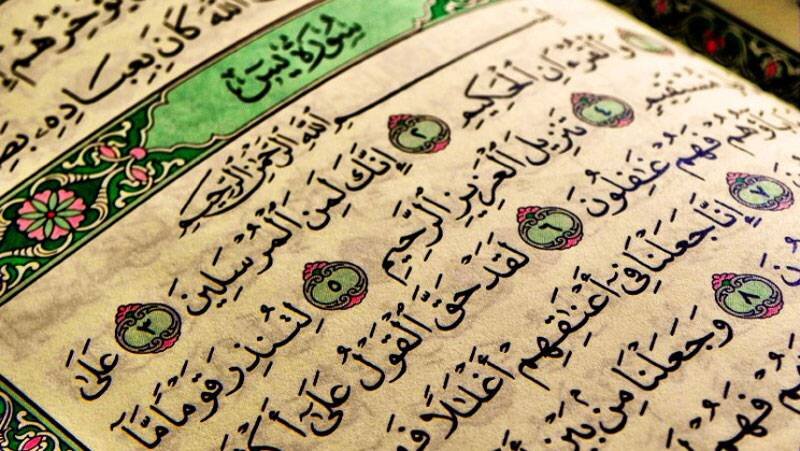 ٱللَّهَ كَانَ بِعِبَادِهِۦ
سُورَةُ يسٓ
بِسْمِ ٱللَّهِ ٱلرَّحْمَٰنِ ٱلرَّحِيمِ
وَٱلْقُرْءَانِ ٱلْحَكِيمِ ٢ إِنَّكَ لَمِنَ ٱلْمُرْسَلِينَ ٣ عَلَىٰ
مُّسْتَقِيمٍ ٤ تَنزِيلَ ٱلْعَزِيزِ ٱلرَّحِيمِ ٥ لِتُنذِرَ قَوْمًا مَّآ
ءَابَآؤُهُمْ فَهُمْ غَٰفِلُونَ ٦ لَقَدْ حَقَّ ٱلْقَوْلُ عَلَىٰٓ
٧ إِنَّا جَعَلْنَا فِىٓ أَعْنَٰقِهِمْ أَغْلَٰلًا
٨ وَجَعَلْنَا مِنۢ بَيْنِ
فَهُمْ